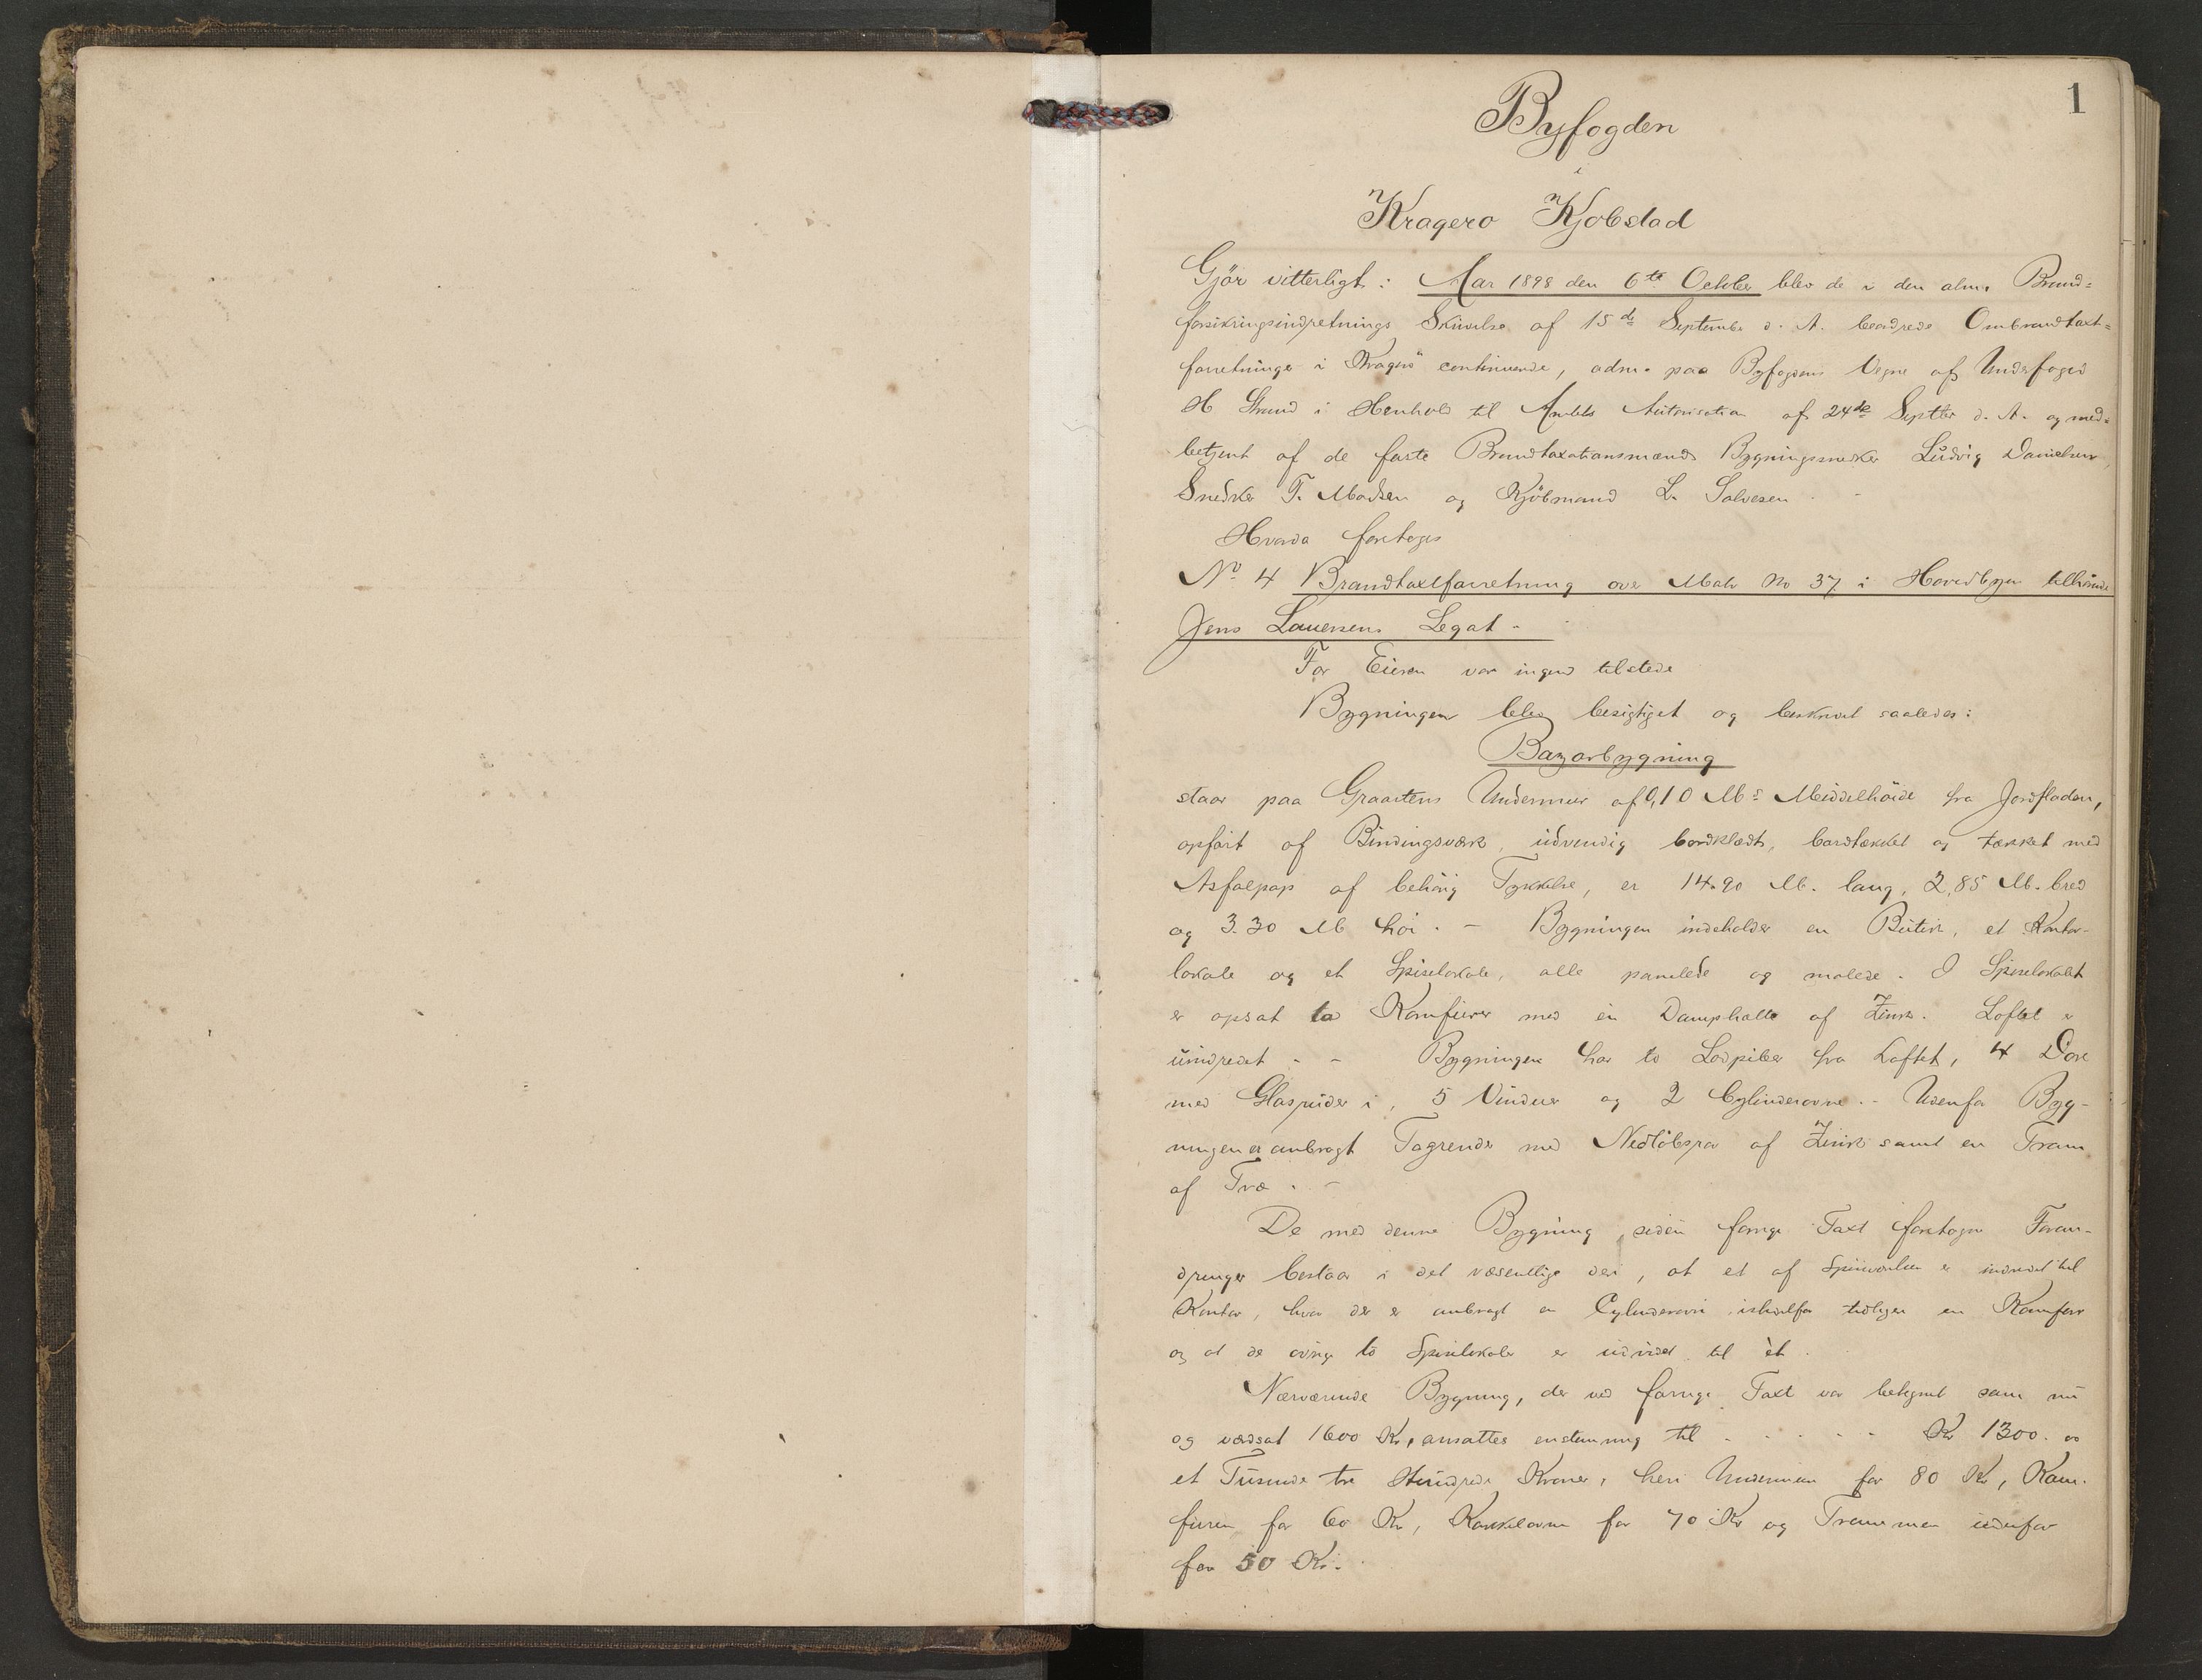 1
Byfogden
i
Kragerö Kjöbstad
Gjör vitterligt: Aar 1898 den 6te October blev de i den alm. Brand=
forsikringsindretnings Skrivelse af 15de September d. A. beordrede Ombrandtaxt=
forretninger i Kragerö continuerede, adm. paa Byfogdens Vegne af Underfoged
H Strand i Henhold til Amtets Autorisation af 24de Septbr d. A. og med=
betjent af de faste Brandtaxationsmænd Bygningssnedker Ludvig Danielsen,
Snedker T. Madsen og Kjöbmand L. Salvesen.
Hvorda foretoges
No 4 Brandtaxtforretning over Matr No 37 i Hovedbyen tilhörende
Jens Lauersens Legat -
For Eieren var ingen tilstede
Bygningen blev besigtiget og beskrevet saaledes:
Bazarbygning
staar paa Graastens Undermur af 0,10 M's Middelhöide fra Jordfladen,
opfört af Bindingsværk, udvendig bordklædt, bordtækket og tækket med
Asfalpap af behörig Tykkelse, er 14.90 M. lang, 2,85 M. bred
og 3.30 M höi. - Bygningen indeholder en Butik, et Kontor-
lokale og et Spiselokale, alle panelede og malede. I Spiselokalet
er opsat to Komfurer med en Damphætte af Zink. Loftet er
uindredet - - Bygningen har to Lodpiber fra Loftet, 4 Döre
med Glasruder i, 5 Vinduer og 2 Cylinderovne. - Udenfor Byg-
ningen er anbragt Tagrender med Nedlöbsrör af Zink samt en Tram
af Træ. -
De med denne Bygning siden forrige Taxt foretagne Foran-
dringer bestaar i det væsentlige deri, at et af Spiselokalerne er indredet til
Kontor, hvor der er anbragt en Cylinderovn istedetfor tidligere en Komfur
og at de övrige to Spiselokaler er udvidet til èt.
Nærværende Bygning, der ved forrige Taxt var betegnet som nu
og værdsat 1600 Kr, ansattes enstemmig til - - - - - Kr 1300. 00
et Tusinde tre Hundrede Kroner, heri Undermuren for 80 Kr, Kom-
furen for 60 Kr, Kakkelovne for 70 Kr og Trammen udenfor
for 50 Kr.